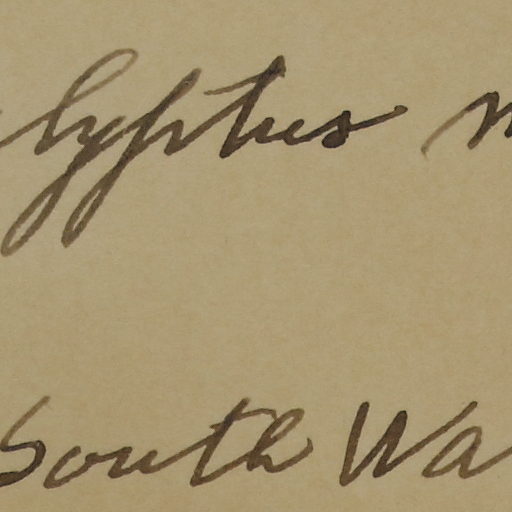 lyptus
South Wa